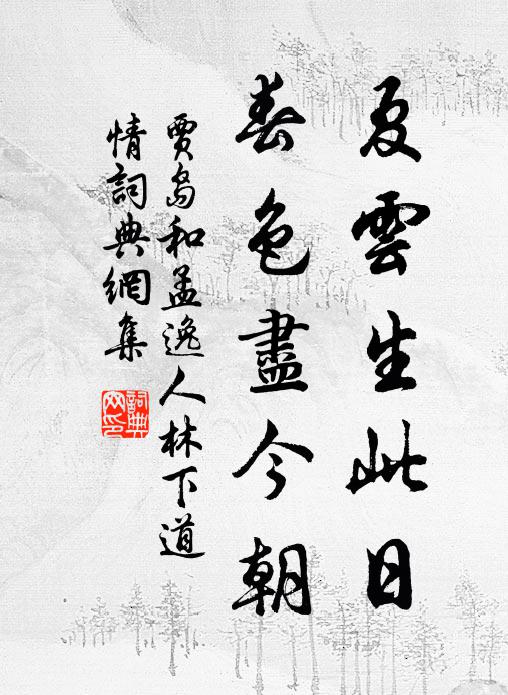 夏雲生此日
春色盡今朝
賈島和孟逸人林下道
情詞典網集
詞典網印